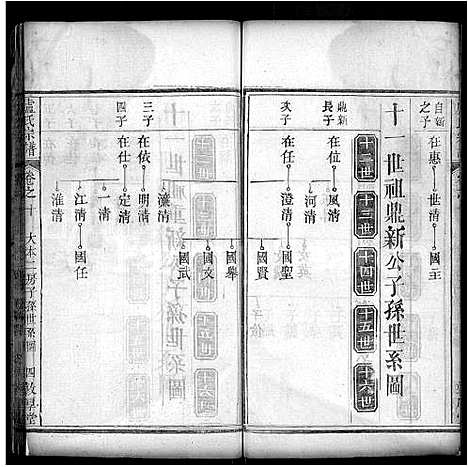 自新之子
在惠
世清
國主
十一世祖鼎新公子孫世系圖
十二世
十三世
十四世
十五世
十六世
鼎新長子
在位
風清
河清
次子
在任
澄清
國聖
國賢
國舉
國文
國武
三子
在依
明清
瀛清
四子
在仕
定清
一清
江清
國任
淮清
盧氏宗譜
卷之十
大本二房子孫世系圖
四
敦厚堂